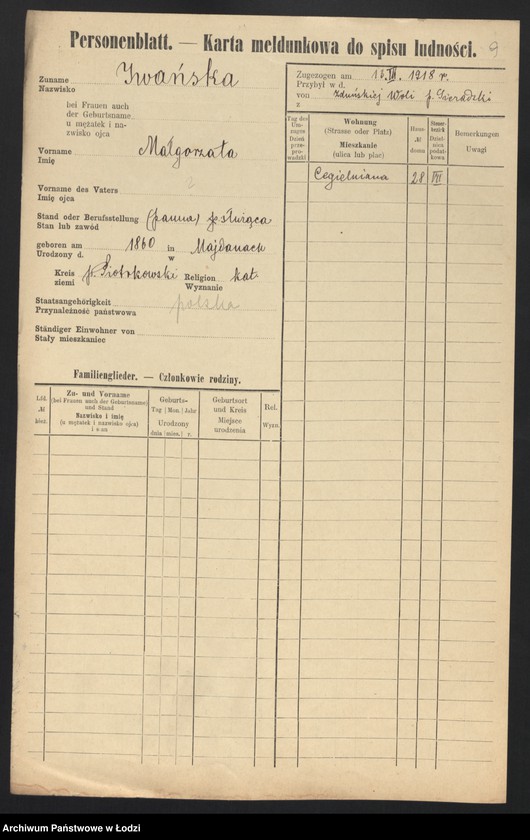 Personenblatt. — Karta meldunkowa do spisu ludności.
9
Zuname
Nazwisko
Iwańska
bei Frauen auch
der Geburtsname
u mężatek i na-
zwisko ojca
Vorname
Imię
Małgorzata
Vorname des Vaters
Imię ojca
Stand oder Berufsstellung
Stan lub zawód
(panna) służąca
geboren am 1860 in Majdanach
Urodzony d. w
Kreis
ziemi
p. Piotrkowski
Religion
Wyznanie
kat
Staatsangehörigkeit
Przynależność państwowa
polska
Ständiger Einwohner von
Stały mieszkaniec
Zugezogen am 15. VII. 1918 r.
Przybył w d.
von Zduńskiej Woli p. Sieradzki
z
Tag des
Um-
zuges
Dzień
prze-
pro-
wadzki
Wohnung
(Strasse oder Platz)
Mieszkanie
(ulica lub plac)
Haus-
№
domu
Steuer-
bezirk
Dziel-
nica
podat-
kowa
Bemerkungen
Uwagi
Cegielniana 28 VII
Familienglieder. — Członkowie rodziny.
Lfd.
№
bież.
Zu- und Vorname
(bei Frauen auch der Geburtsname)
und Stand
Nazwisko i imię
(u mężatek i nazwisko ojca)
Geburts-
Tag | Mon. | Jahr
Urodzony
dnia | mies. | r.
Geburtsort
und Kreis
Miejsce
urodzenia
Rel.
Wyzn.
Archiwum Państwowe w Łodzi